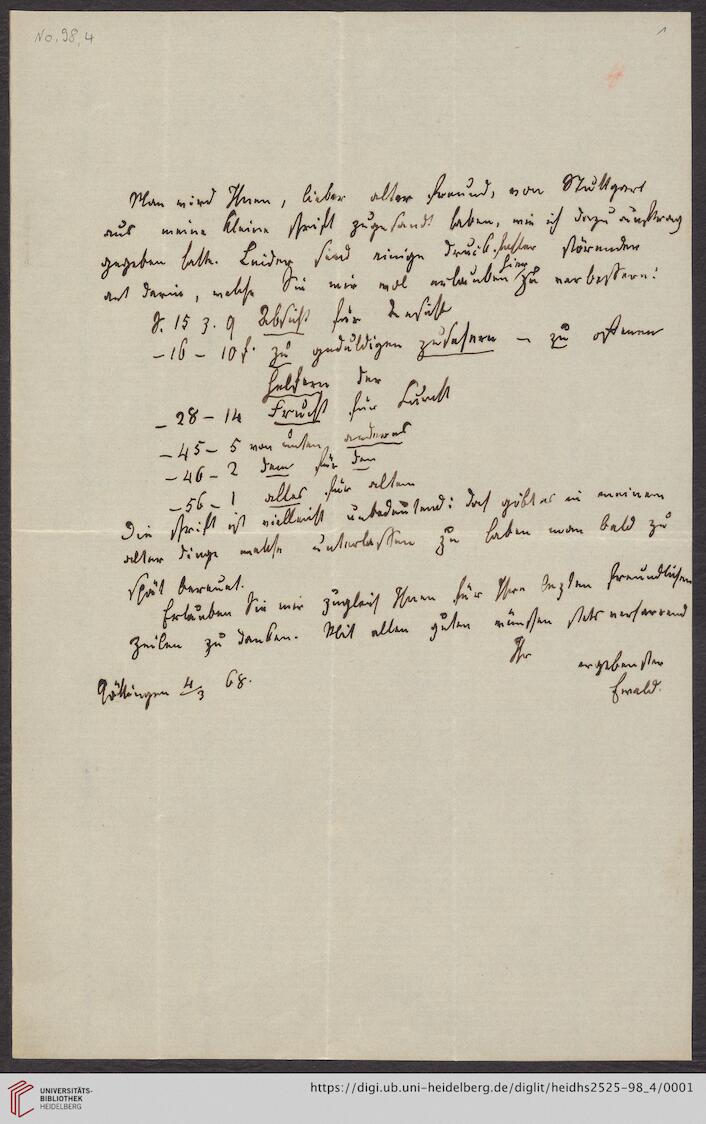 No. 98,4
1
Man wird Ihnen, lieber alter Freund, von Stuttgart
aus meine kleine schrift zugesandt haben, wie ich dazu auftrag
gegeben hatte. Leider sind einige druckfehler störender
art darin, welche Sie mir wol erlauben hier zu verbessern:
S. 15 z. 9 Absicht für
– 16 – 10 f. zu geduldigen zusehern – zu offenen
helfern der
– 28 – 14 Frucht für Furcht
– 45 – 5 von unten anderes
– 46 – 2 dem für den
– 56 – 1 altes für altem
Die schrift ist vielleicht unbedeutend: doch gibt es in meinem
alter dinge welche unterlassen zu haben man bald zu
spät bereuet.
Erlauben Sie mir zugleich Ihnen für Ihre lezten freundlichen
zeilen zu danken. Mit allen guten wünschen stets verharrend
Ihr ergebenster
Göttingen 4/3 68.
Ewald.
UNIVERSITÄTS-
BIBLIOTHEK
HEIDELBERG
https://digi.ub.uni-heidelberg.de/diglit/heidhs2525-98_4/0001